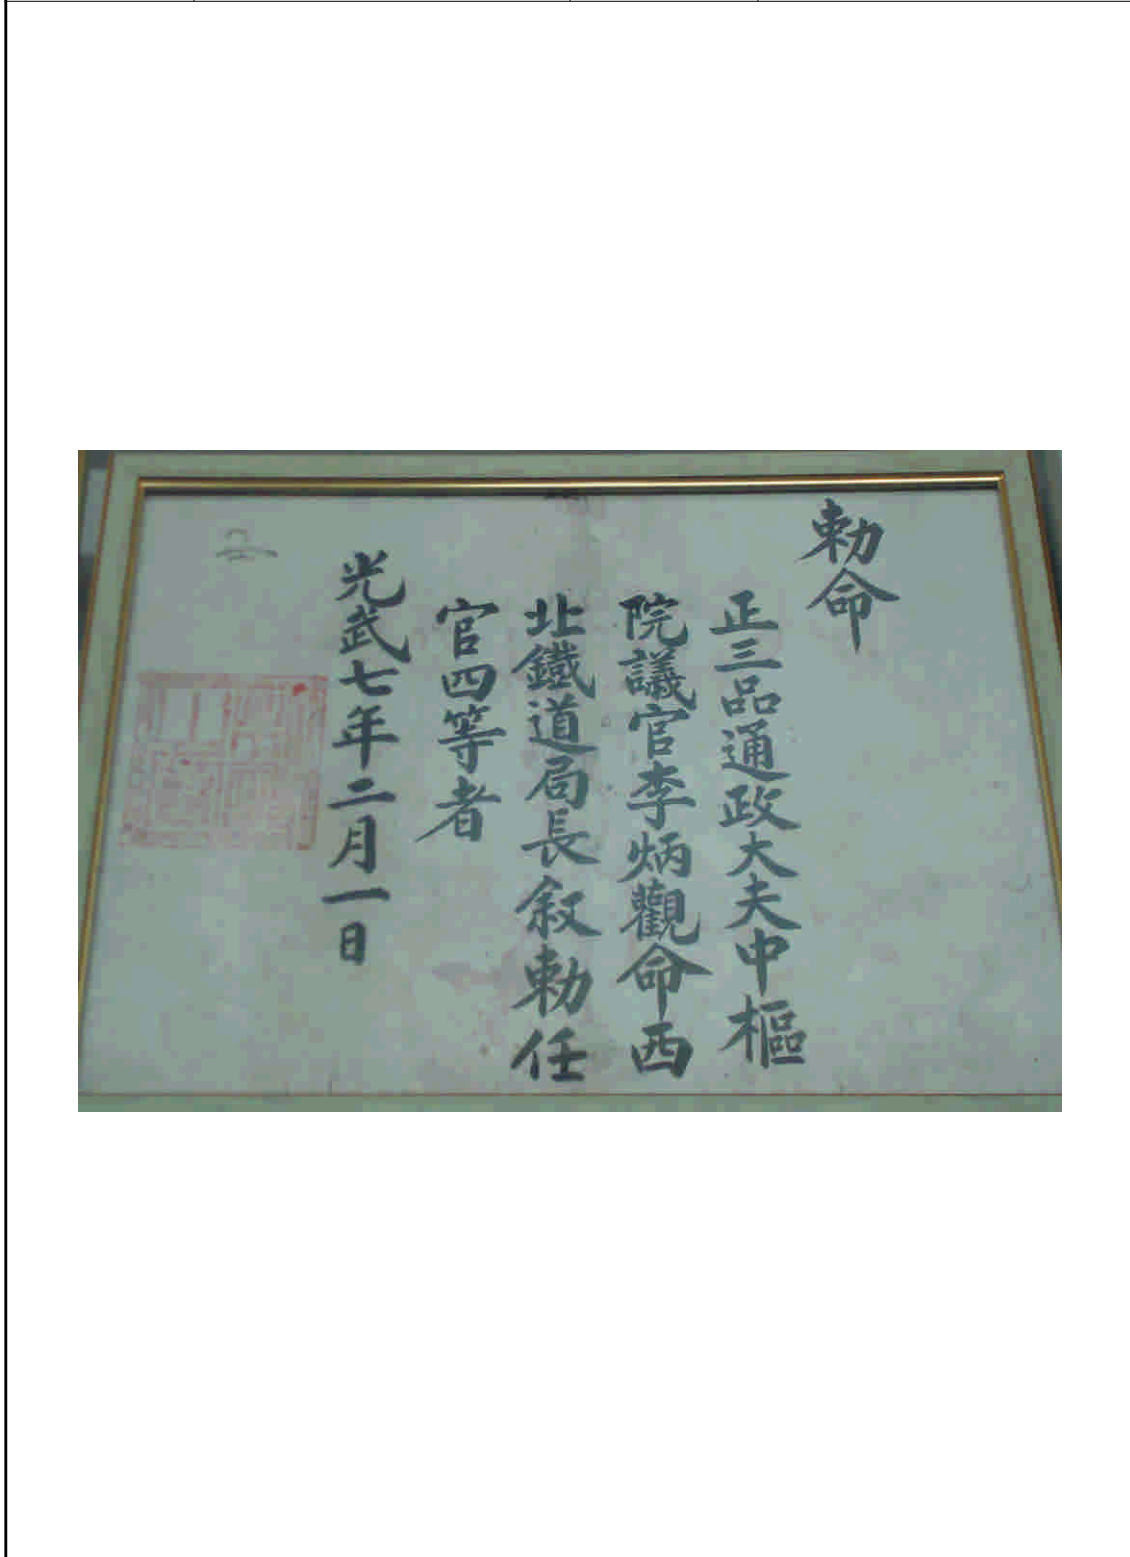 勅命
正三品通政大夫中樞
院議官李炳觀命西
北鐵道局長敍勅任
官四等者
光武七年二月一日